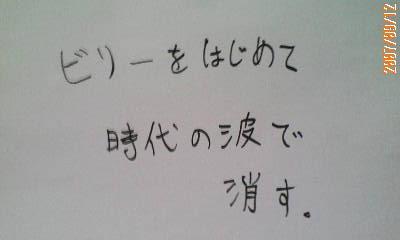 ビリーをはじめて
時代の波で
消す。
2007/09/12